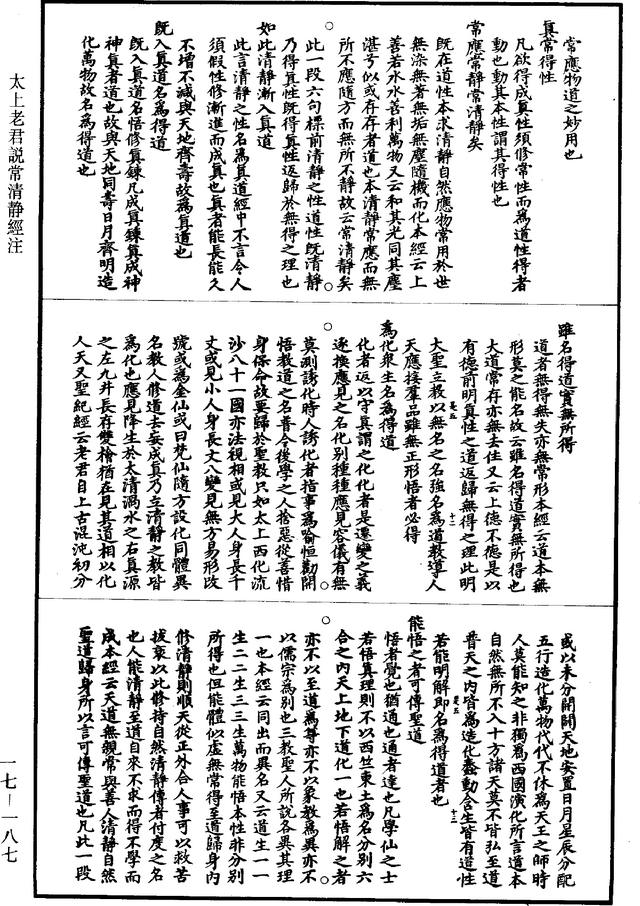 太上老君説常清靜經注
常應物道之妙用也
真常得性
凡欲得成真性須修常性而爲道性得者
動也動其本性謂其得性也
常應常靜常清靜矣
既在道性本求清靜自然應物常用於世
無染無著無垢無塵隨機而化本經云上
善若水水善利萬物又云和其光同其塵
湛兮似或存存者道也本清靜常應而無
所不應隨方而無所不靜故云常清靜矣
此一段六句標前清靜之性道性既清靜
乃得真性既得真性返歸於無得之理也
如此清靜漸入真道
此言清靜之性名爲真道經中不言令人
須假性修漸進而成真也真者能長能久
不增不減與天地齊壽故爲真道也
既入真道名爲得道
既入真道名悟修真鍊凡成真鍊真成神
神真者道也故與天地同壽日月齊明造
化萬物故名爲得道也
雖名得道實無所得
道者無得無失亦無常形本經云道本無
形莫之能名故云雖名得道實無所得也
大道常存亦無去住又云上德不德是以
有德前明真性之道返歸無得之理此明
大聖立教以無名之名強名爲道教導人
天應接羣品雖無正形悟者必得
爲化衆生名爲得道
化者返以守真謂之化化者是還變之義
逐換應見之名化別種種應見容儀有無
莫測誘化時人誘化者指事爲喻恒勸開
悟教道之名普令後學之人捨惡從善惜
身保命故要歸於聖教只如太上西化流
沙八十一國亦法視相或見大人身長千
丈或見小人身長丈八變見無方易形改
號或爲金仙或曰梵仙隨方設化同體異
名教人修道去妄成真乃立清靜之教皆
爲化也應見降生於太清渦水之右真源
之左九井長存雙檜猶在見其道相以化
人天又聖紀經云老君自上古混沌初分
或以未分開闢天地安置日月星辰分配
五行造化萬物代代不休爲天王之師時
人莫能知之非獨爲西國演化所言道本
自然無所不入十方諸天莫不皆弘至道
普天之內皆爲造化蠢動含生皆有道性
若能明解即名爲得道者也
能悟之者可傳聖道
悟者覺也猶通也通者達也凡學仙之士
若悟真理則不以西竺東土爲名分別六
合之內天上地下道化一也若悟解之者
亦不以至道爲尊亦不以象教爲異亦不
以儒宗爲別也三教聖人所説各異其理
一也本經云同出而異名又云道生一一
生二二生三三生萬物能悟本性非分別
所得也但能體似虛無常得至道歸身內
修清靜則順天從正外合人事可以救苦
拔衰以此修持自然清靜傳者付度之名
也人能清靜至道自來不求而得不學而
成本經云天道無親常與善人清靜自然
聖道歸身所以言可傳聖道也凡此一段
一七—一八七